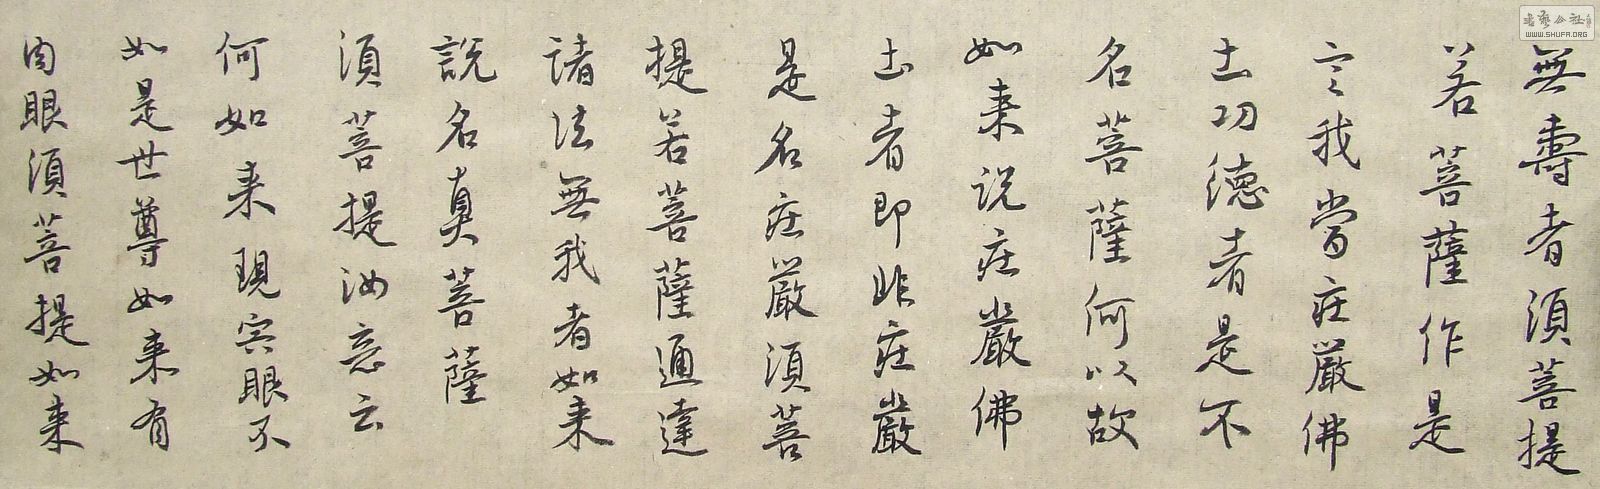 無壽者須菩提
若菩薩作是
言我當莊嚴佛
土功德者是不
名菩薩何以故
如来说莊嚴佛
土者即非莊嚴
是名莊嚴須菩
提若菩薩通達
諸法無我者如来
説名真菩薩
須菩提汝意云
何如来現宍眼不
如是世尊如来有
肉眼須菩提如来
書藝公社
WWW.SHUFA.ORG